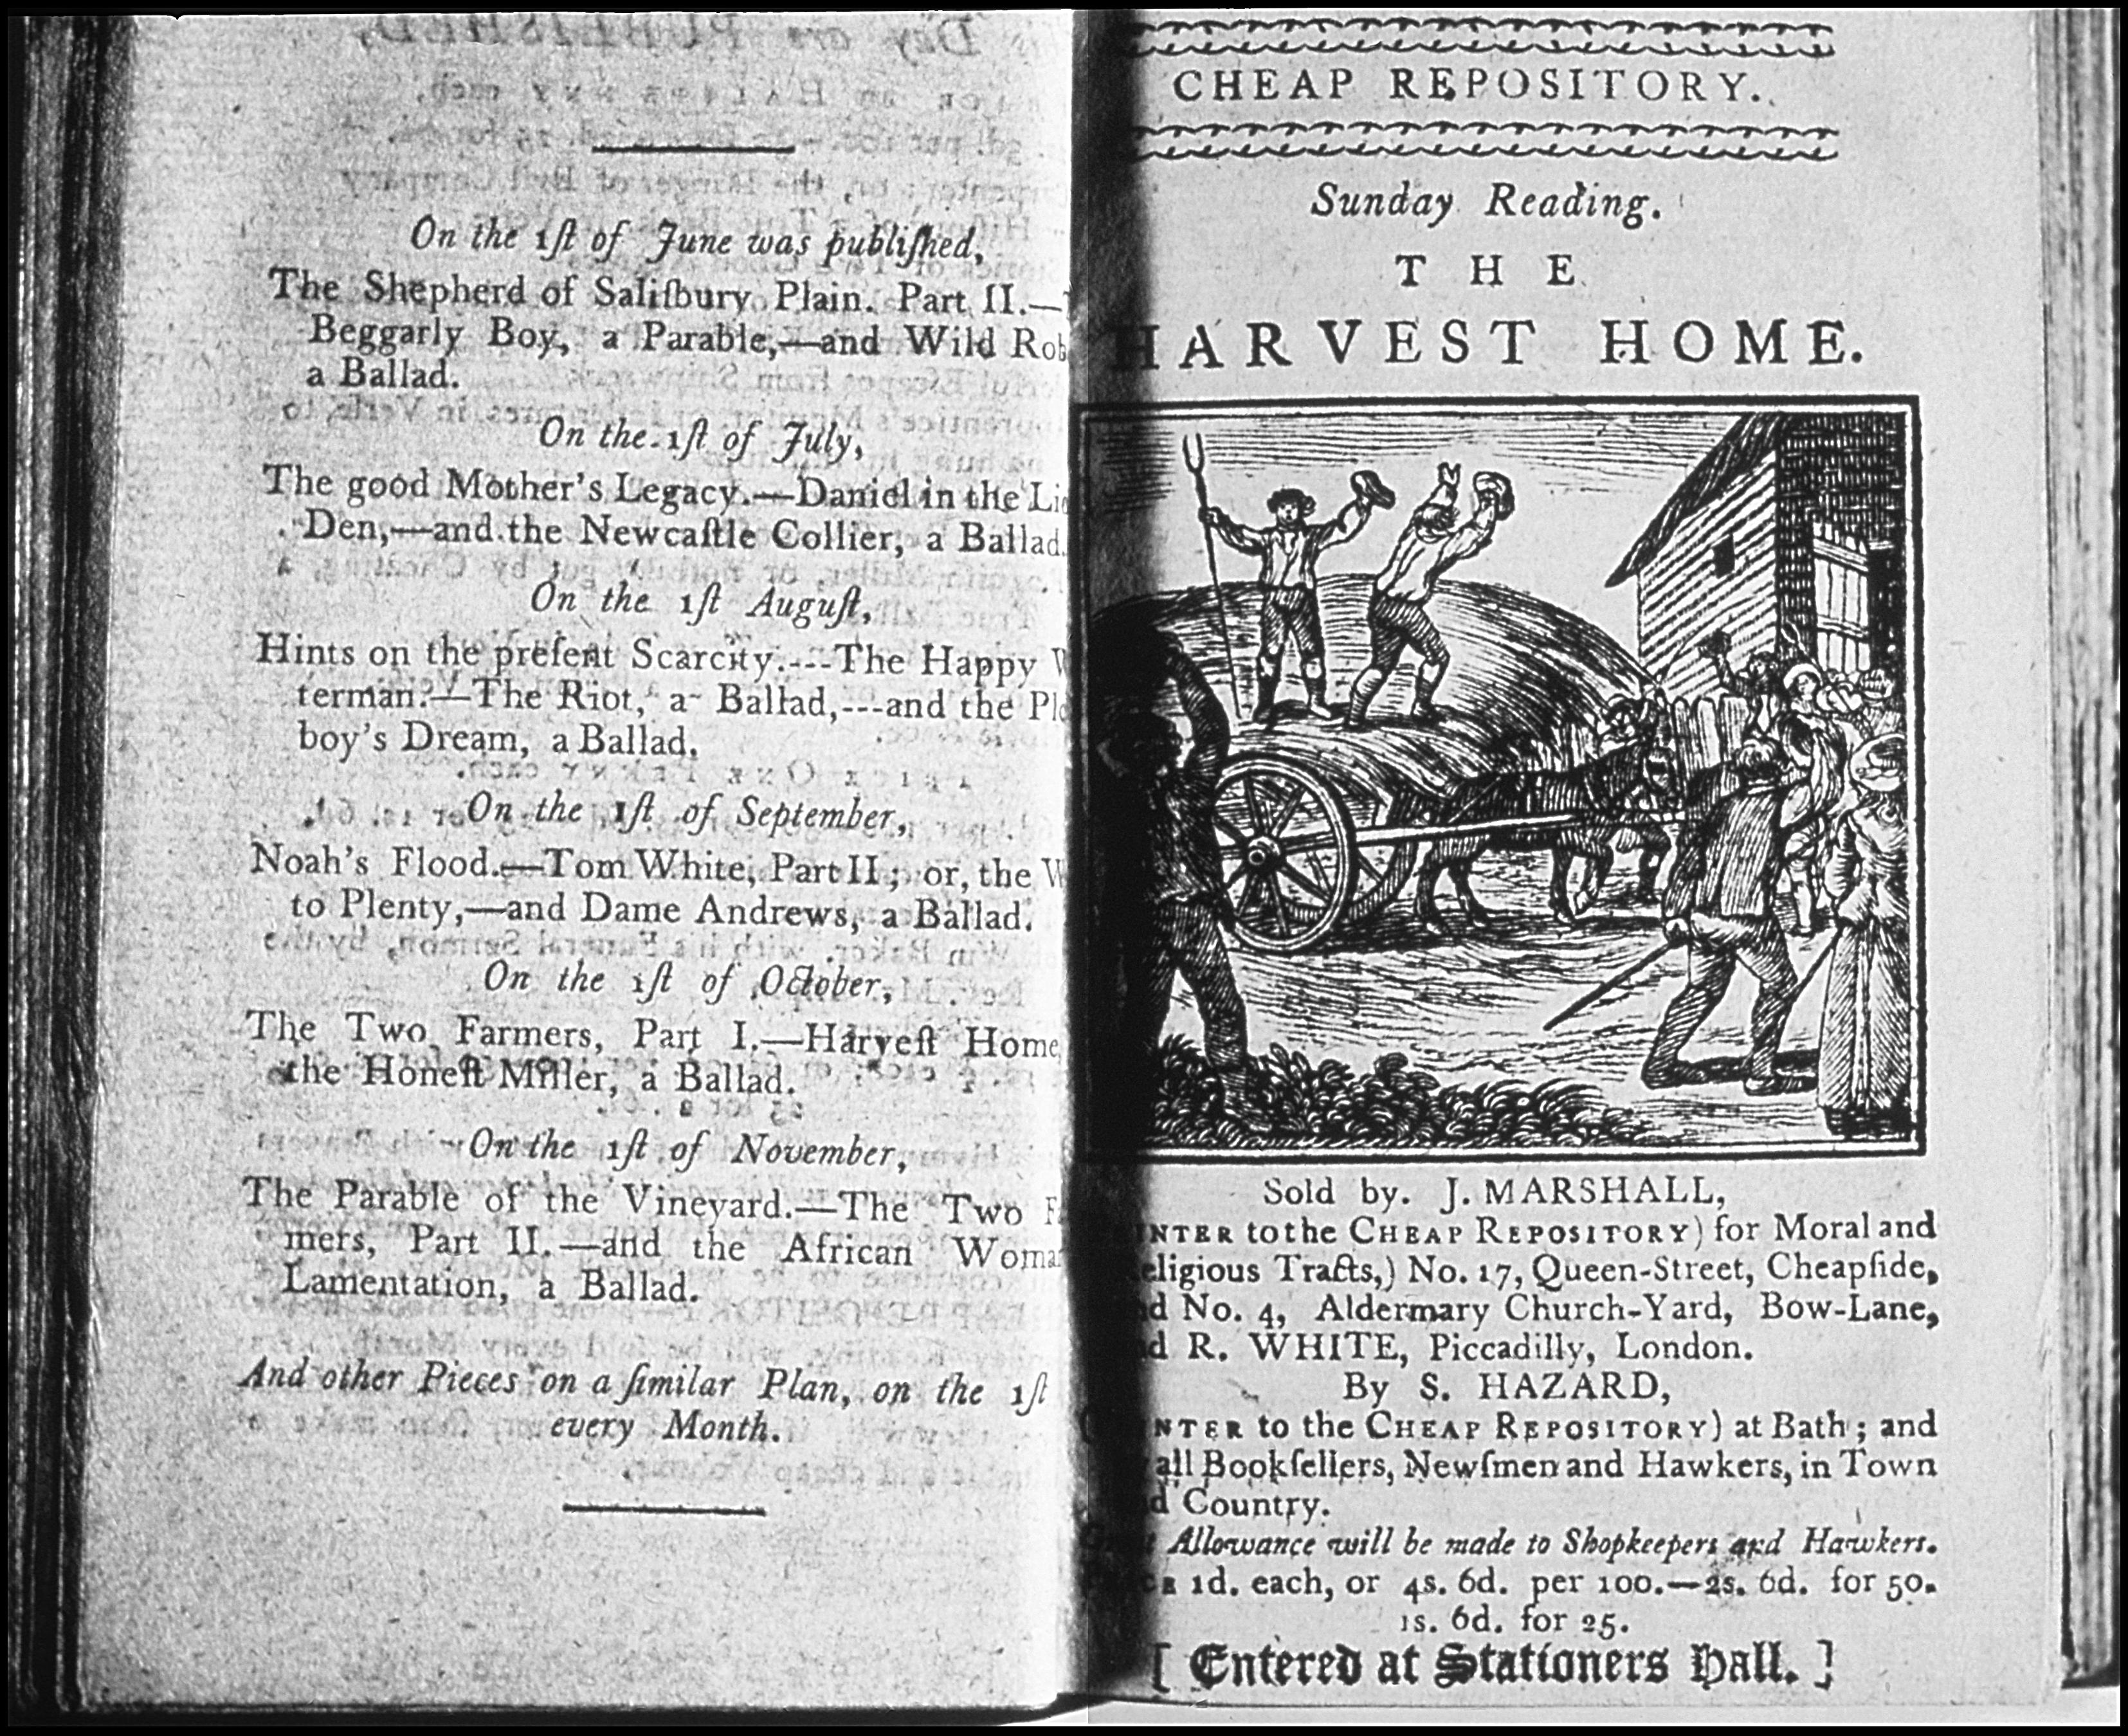 On the 1ſt of June was publiſhed,
The Shepherd of Saliſbury Plain. Part II.—
Beggarly Boy, a Parable,—and Wild
a Ballad.
On the 1ſt of July,
The good Mother's Legacy.—Daniel in the
Den,—and the Newcaſtle Collier, a Ballad.
On the 1ſt Auguſt,
Hints on the preſent Scarcity.---The Happy
terman.—The Riot, a Ballad,---and the
boy's Dream, a Ballad.
On the 1ſt of September,
Noah's Flood.—Tom White, Part II; or, the
to Plenty,—and Dame Andrews, a Ballad.
On the 1ſt of October,
The Two Farmers, Part I.—Harveſt Home
the Honeſt Miller, a Ballad.
On the 1ſt of November,
The Parable of the Vineyard.—The Two
mers, Part II.—and the African
Lamentation, a Ballad.
And other Pieces on a ſimilar Plan, on the 1ſt
every Month.
CHEAP REPOSITORY.
Sunday Reading.
THE
HARVEST HOME.
Sold by. J. MARSHALL,
to the CHEAP REPOSITORY) for Moral and
Tracts,) No. 17, Queen-Street, Cheapſide,
No. 4, Aldermary Church-Yard, Bow-Lane,
R. WHITE, Piccadilly, London.
By S. HAZARD,
to the CHEAP REPOSITORY) at Bath; and
all Bookſellers, Newſmen and Hawkers, in Town
Country.
Allowance will be made to Shopkeepers and Hawkers.
1d. each, or 4s. 6d. per 100.—2s. 6d. for 50.
1s. 6d. for 25.
[ Entered at Stationers Hall. ]